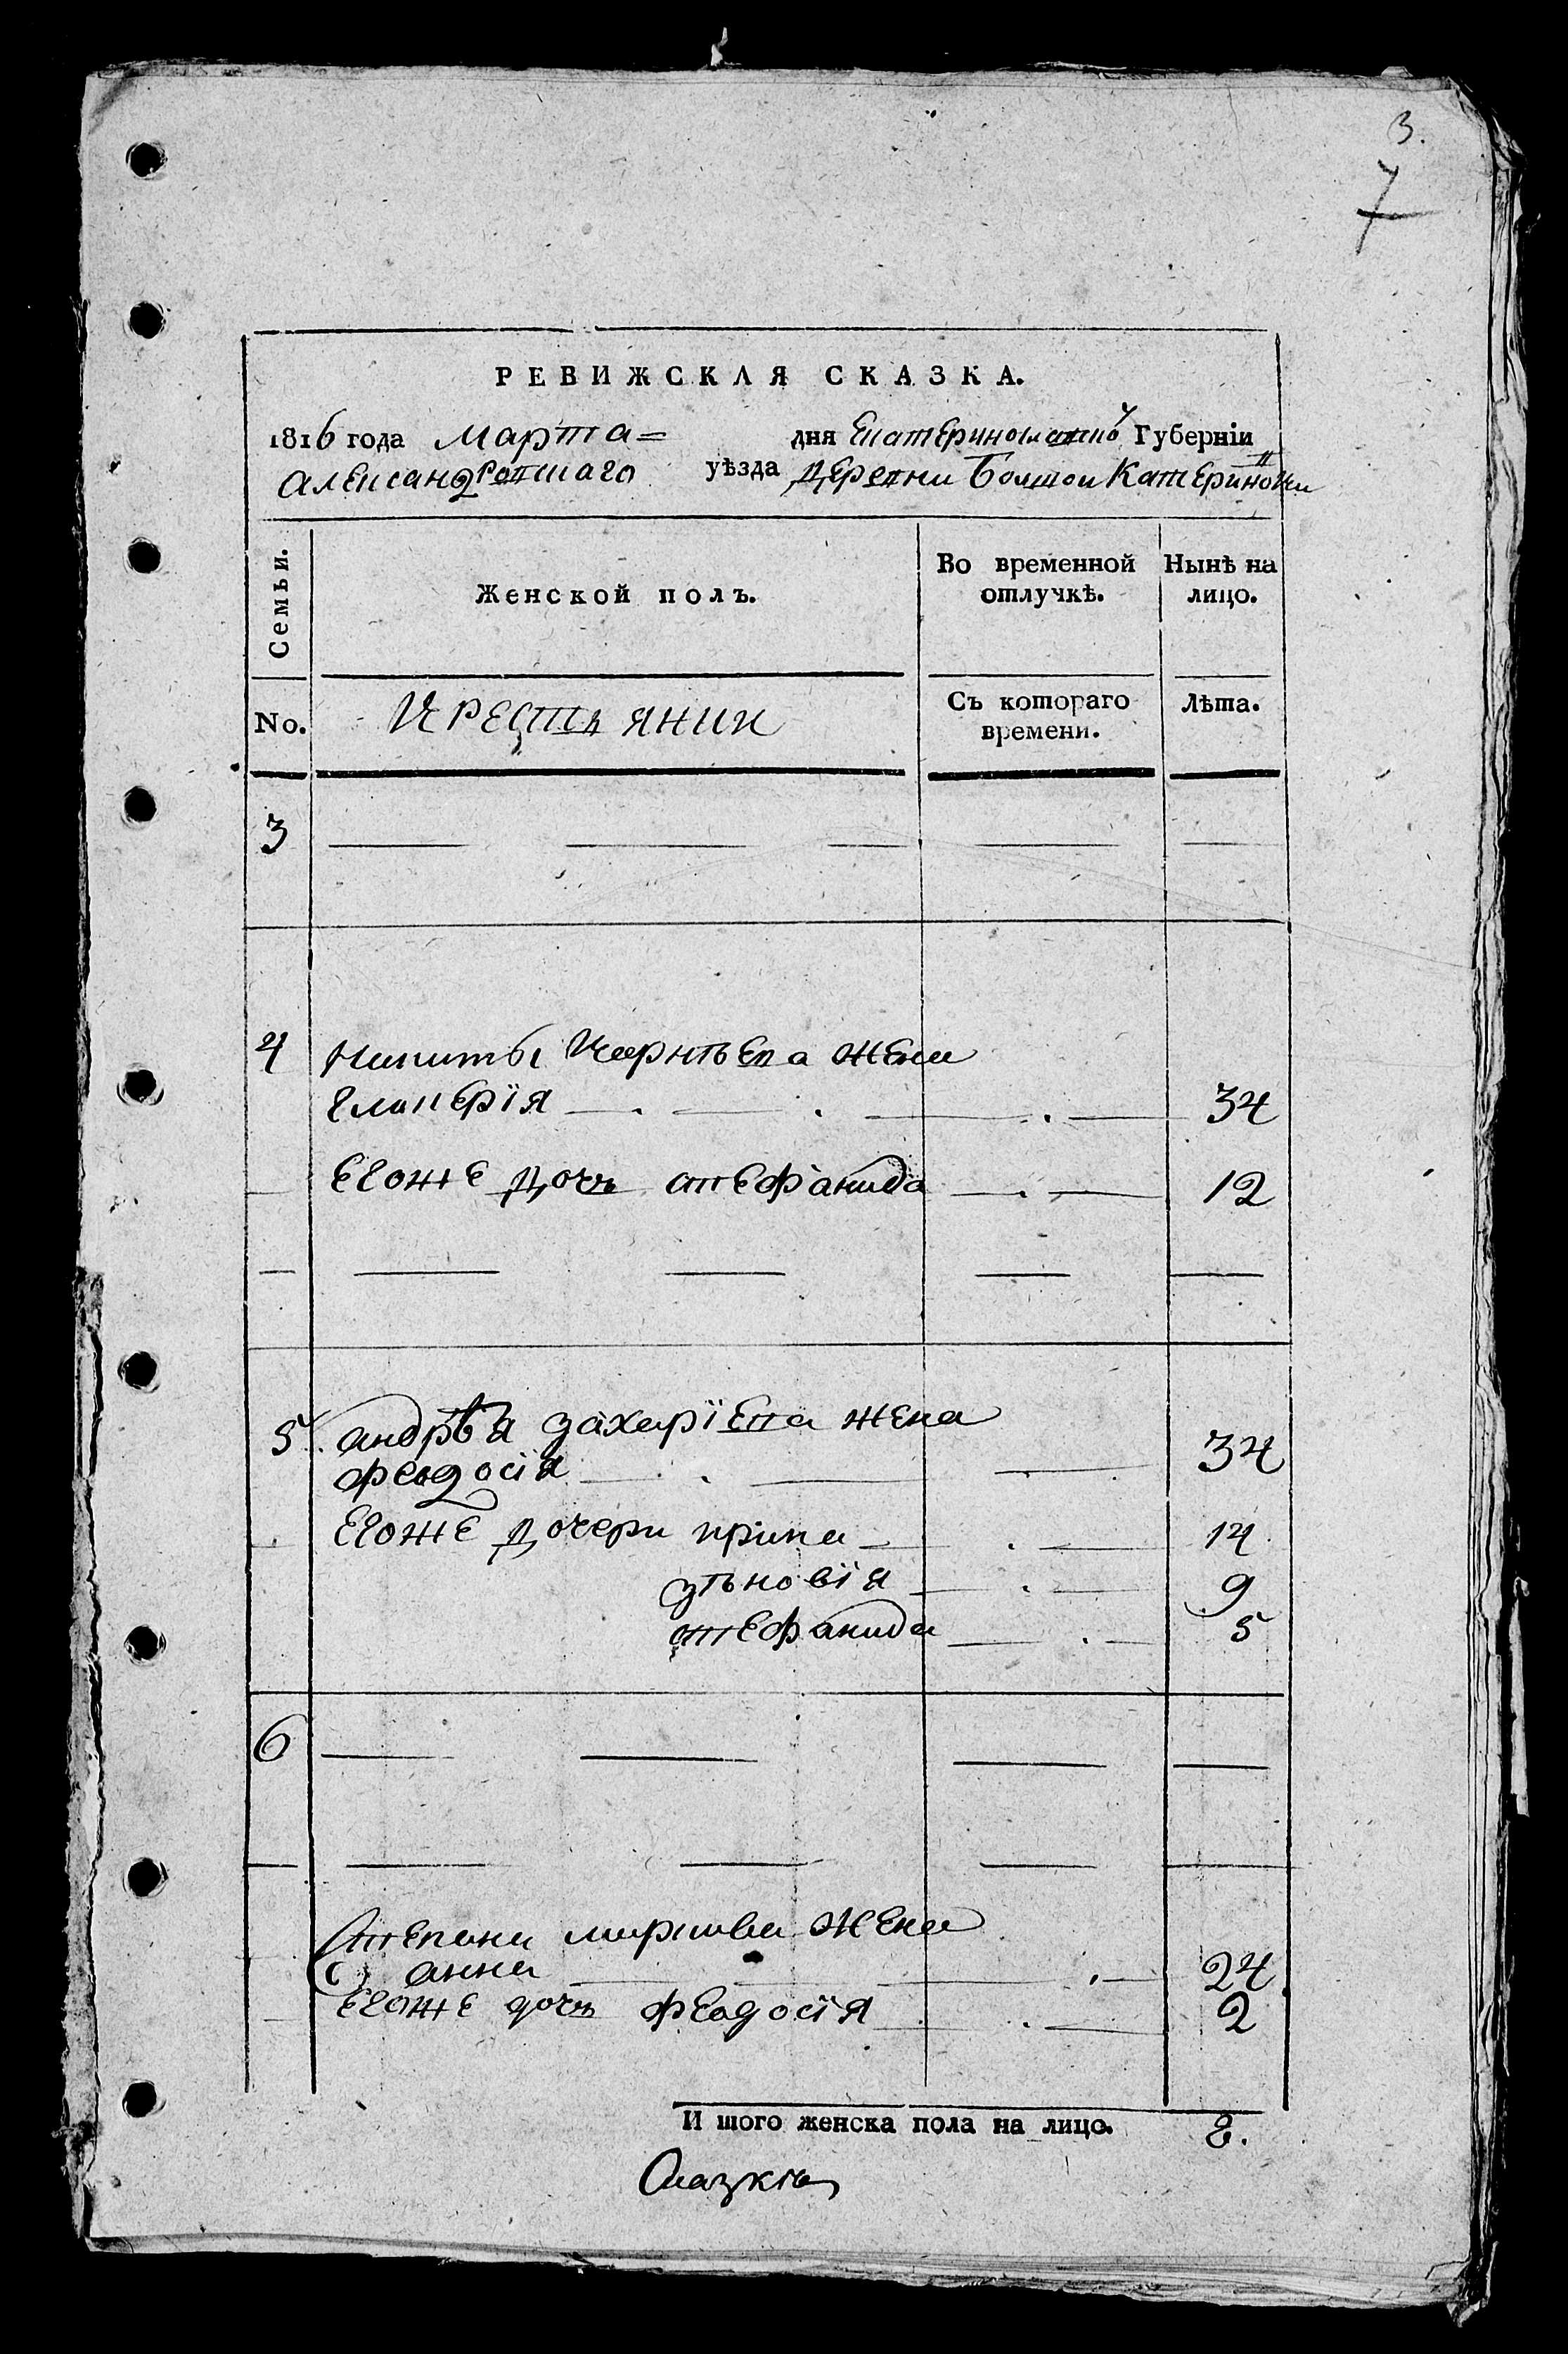 3.
7
РЕВИЖСКАЯ СКАЗКА.
1816 года Марта = дня Екатеринославской Губерніи
Александровскаго уѣзда Деревни Болшой Катериновки
Семьи. Женской полъ. Во временной отлучкѣ. Нынѣ на лицо.
No. Крестьянки Съ котораго времени. Лѣта.
3
4 Никиты Корнѣева жена
Гликерія 34
Егоже дочь Стефанида 12
5. Андрѣя Захаріева жена
Феодосія 34
Егоже дочери Ирина 14
Зѣновія 9
Стефанида 5
6
Степана жена
Анна 24
Егоже дочь Феодосія 2
И того женска пола на лицо. 8.